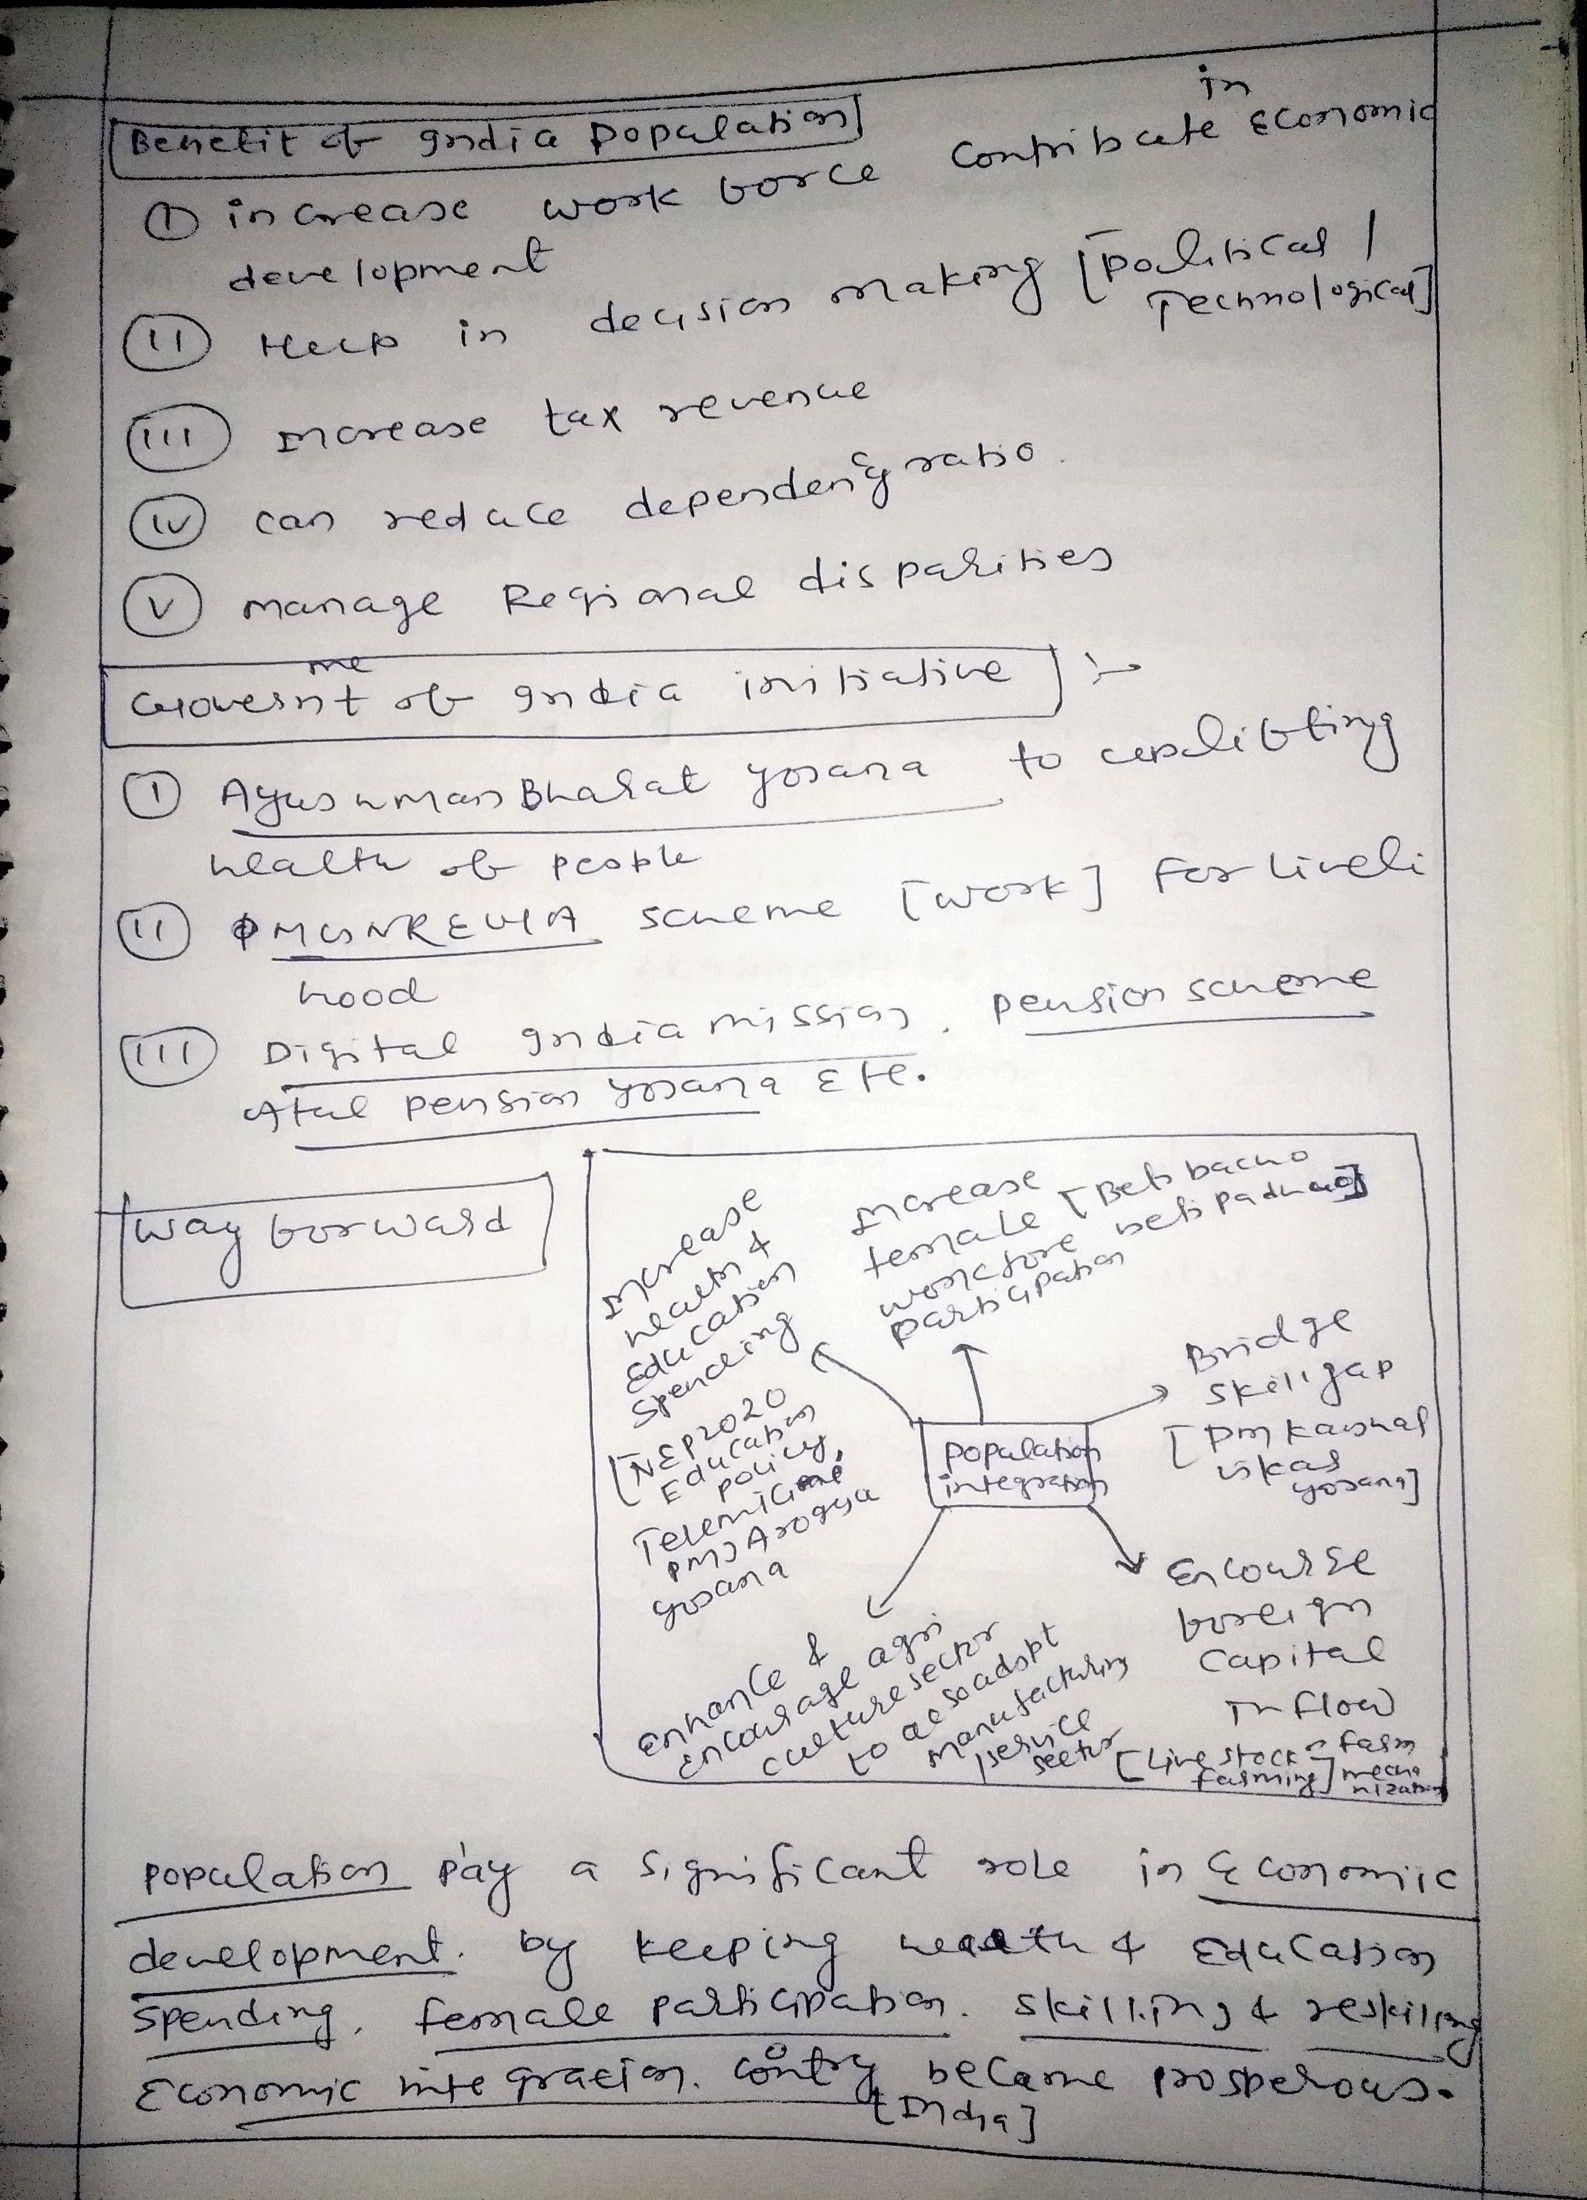 Benefit of India Population
I increase work force contribute in Economic
development
II Help in decision making [Political /
Technological]
III Increase tax revenue
IV can reduce dependency ratio.
V manage Regional disparities
Government of India initiative :-
I Ayushman Bharat Yojana to uplifting
health of people
II MGNREGA scheme [work] For liveli
hood
III Digital India mission, pension scheme
Atal pension Yojana Etc.
Way forward
Increase
health &
Education
spending
[NEP2020
Education
policy,
PMJ Arogya
yojana
Increase
female [Beti bacho
beti padhao]
participation
Bridge
skill gap
[PM kaushal
vikas
yojana]
Population
integration
foreign
capital
Inflow
Enhance &
encourage agri
culture sector
to also adopt
manufacturing
/service
sector
[Live stock farming] farm
mecha
nization
Population pay a significant role in Economiic
development. by keeping health & Education
spending, female participation. skilling & reskilling
Economic integration. contry became prosperous.
[India]